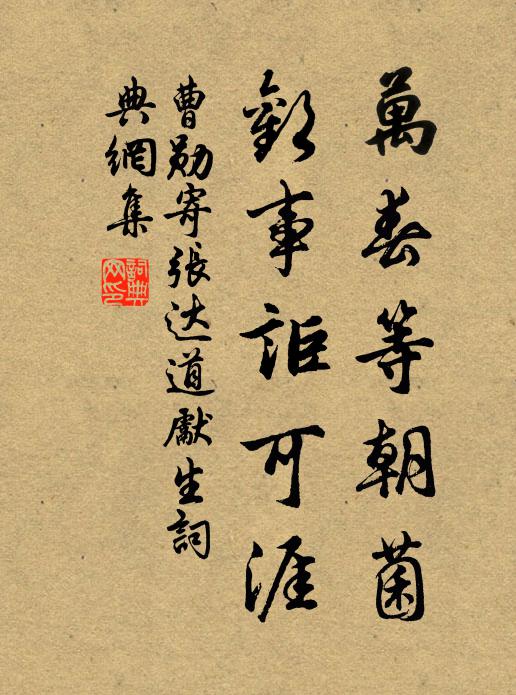 萬春等朝菌
歡事詎可涯
曹勛寄張达道獻生詞
典網集
詞典
网印